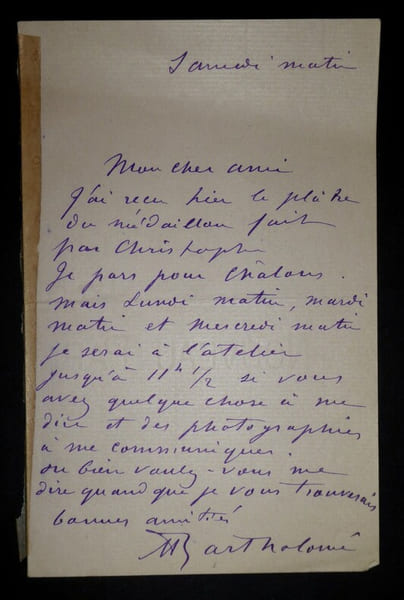 Samedi matin
Mon cher ami
J'ai reçu hier le plâtre
du médaillon fait
par Christophe
Je pars pour Châlons.
mais Lundi matin, mardi
matin et Mercredi matin
je serai à l'atelier
jusqu'à 11h 1/2 si vous
avez quelque chose à me
dire et des photographies
à me communiquer.
ou bien voulez-vous me
dire quand que je vous trouverais
bonnes amitiés
Bartholomé